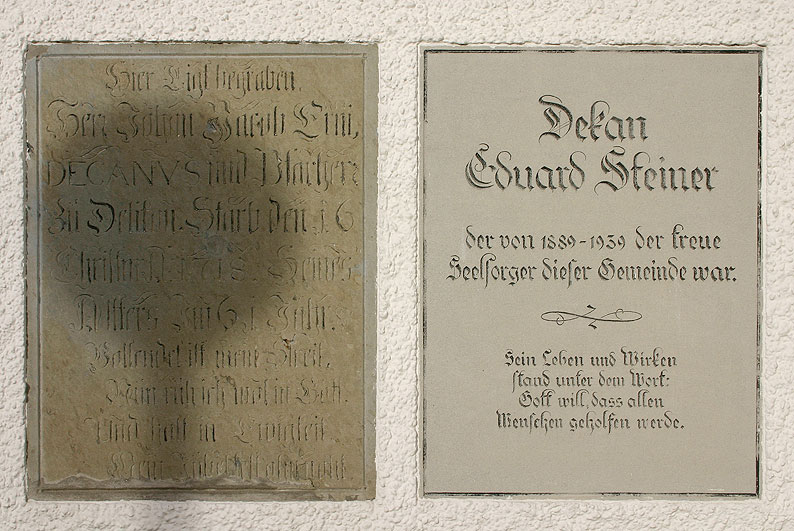 Hier Ligt begraben.
Herr Johann Jacob
DECANVS und Pfarherr
Zu Starb den 16
Christm.
Alters Im 61 Jahr.
Vollendet ist mein Streit,
Nun ruh ich wol in Gott
Und hall in Ewigkeit
Mein
Dekan
Eduard Steiner
der von 1889-1939 der treue
Seelsorger dieser Gemeinde war.
Sein Leben und Wirken
stand unter dem Wort:
Gott will, dass allen
Menschen geholfen werde.